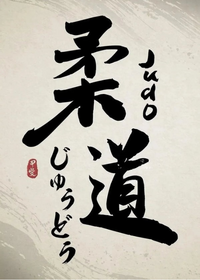 柔道
Judo
じゅうどう